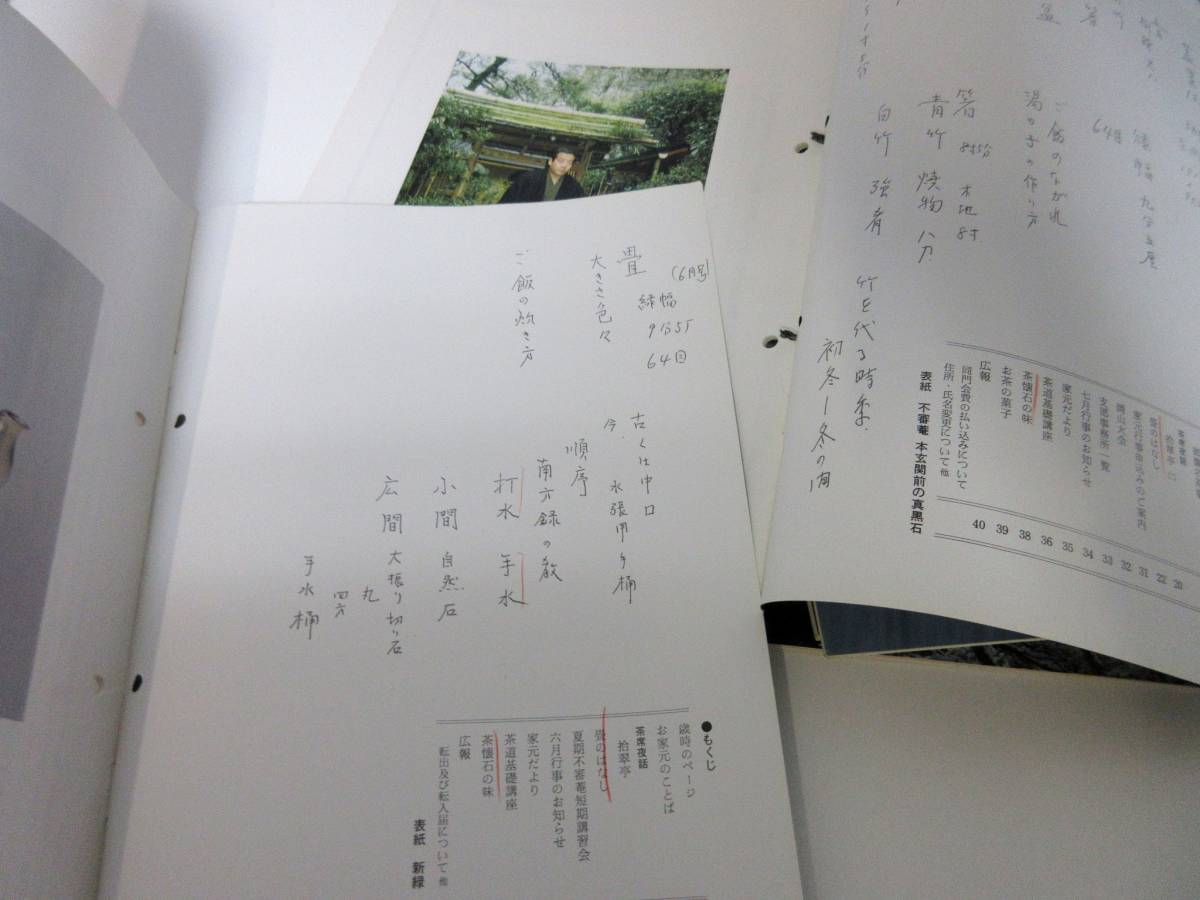 (6月号)
畳
縁幅
9分5厂
64目
大きさ色々
ご飯の炊き方
古くは中口
今、水張甲手桶
順序
南方録の教
打水 手水
小間 自然石
広間 大振り切り石
丸
四方
手水桶
●もくじ
歳時のページ
お家元のことば
茶席夜話
拾翠亭
畳のはなし
夏期不審菴短期講習会
六月行事のお知らせ
家元だより
茶道基礎講座
茶懐石の味
広報
転出及び転入届について 他
表紙 新緑
64目
ご飯のながれ
湯の子の作り方
箸
青竹 焼物 八寸
白竹 強肴
竹を代る時季
初冬ー冬の間
茶席夜話
拾翠亭
畳のはなし
家元行事申込みのご案内
岡山大会
支部事務所一覧
七月行事のお知らせ
家元だより
茶道基礎講座
茶懐石の味
お茶の菓子
広報
同門会費の払い込みについて
住所・氏名変更について 他
表紙 不審菴 本玄関前の真黒石
40 39 38 36 35 34 33 32 31 22 20